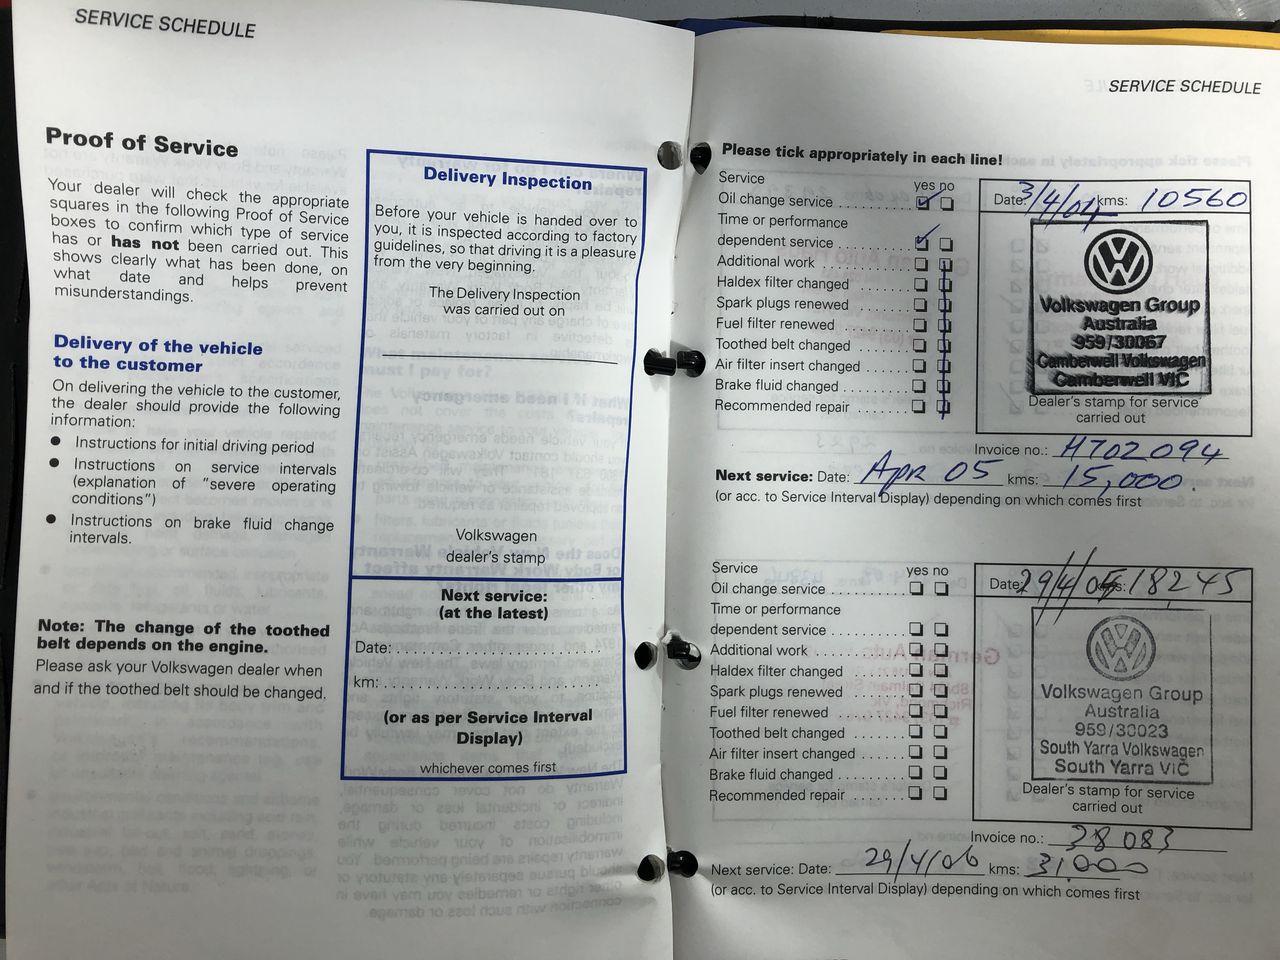 SERVICE SCHEDULE
Proof of Service
Your dealer will check the appropriate
squares in the following Proof of Service
boxes to confirm which type of service
has or has not been carried out. This
shows clearly what has been done, on
what date and helps prevent
misunderstandings.
Delivery of the vehicle
to the customer
On delivering the vehicle to the customer,
the dealer should provide the following
information:
● Instructions for initial driving period
● Instructions on service intervals
(explanation of “severe operating
conditions”)
● Instructions on brake fluid change
intervals.
Note: The change of the toothed
belt depends on the engine.
Please ask your Volkswagen dealer when
and if the toothed belt should be changed.
Delivery Inspection
Before your vehicle is handed over to
you, it is inspected according to factory
guidelines, so that driving it is a pleasure
from the very beginning.
The Delivery Inspection
was carried out on
Volkswagen
dealer's stamp
Next service:
(at the latest)
Date:
km:
(or as per Service Interval
Display)
whichever comes first
SERVICE SCHEDULE
Please tick appropriately in each line!
Service yes no
Oil change service
Time or performance
dependent service
Additional work
Haldex filter changed
Spark plugs renewed
Fuel filter renewed
Toothed belt changed
Air filter insert changed
Brake fluid changed
Recommended repair
Date: 3/4/04 kms: 10560
Volkswagen Group
Australia
959/30067
Camberwell Volkswagen
Camberwell VIC
Dealer's stamp for service
carried out
Invoice no.: H702094
Next service: Date: Apr 05 kms: 15,000.
(or acc. to Service Interval Display) depending on which comes first
Service yes no
Oil change service
Time or performance
dependent service
Additional work
Haldex filter changed
Spark plugs renewed
Fuel filter renewed
Toothed belt changed
Air filter insert changed
Brake fluid changed
Recommended repair
Date: 29/4/05 kms: 18245
Volkswagen Group
Australia
959/30023
South Yarra Volkswagen
South Yarra VIC
Dealer's stamp for service
carried out
Invoice no.: 38083
Next service: Date: 29/4/06 kms: 31,000
(or acc. to Service Interval Display) depending on which comes first